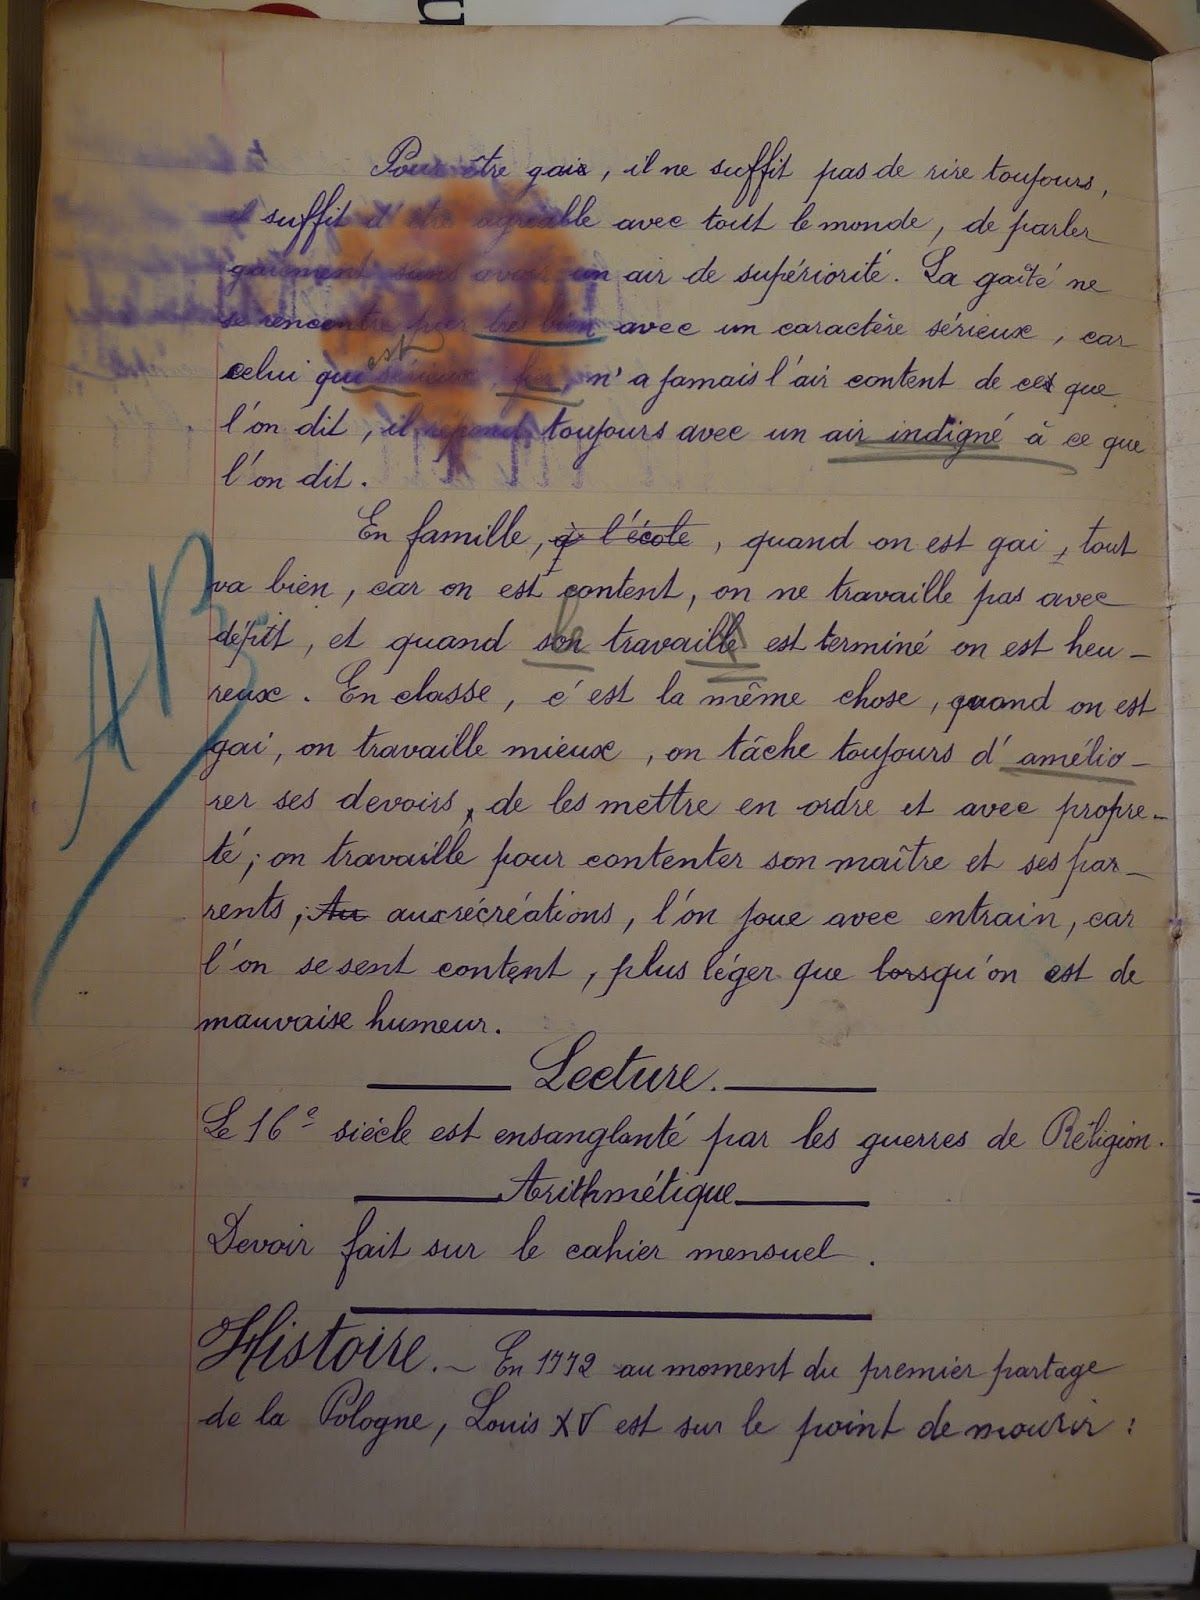 Pour être gaie, il ne suffit pas de rire toujours,
il suffit d'être agréable avec tout le monde, de parler
gaiement sans avoir un air de supériorité. La gaîté ne
se rencontre pas très bien avec un caractère sérieux, car
celui qui est sérieux, n'a jamais l'air content de ce que
l'on dit, il répond toujours avec un air indigné à ce que
l'on dit.
En famille, à l'école, quand on est gai, tout
va bien, car on est content, on ne travaille pas avec
dépit, et quand son travaille est terminé on est heu-
reux. En classe, c'est la même chose, quand on est
gai, on travaille mieux, on tâche toujours d'amélio-
rer ses devoirs, de les mettre en ordre et avec propre-
té; on travaille pour contenter son maître et ses par-
rents; Au aux récréations, l'on joue avec entrain, car
l'on se sent content, plus léger que lorsqu'on est de
mauvaise humeur.
AB
Lecture.
Le 16e siècle est ensanglanté par les guerres de Religion.
Arithmétique
Devoir fait sur le cahier mensuel.
Histoire. - En 1772 au moment du premier partage
de la Pologne, Louis XV est sur le point de mourir :